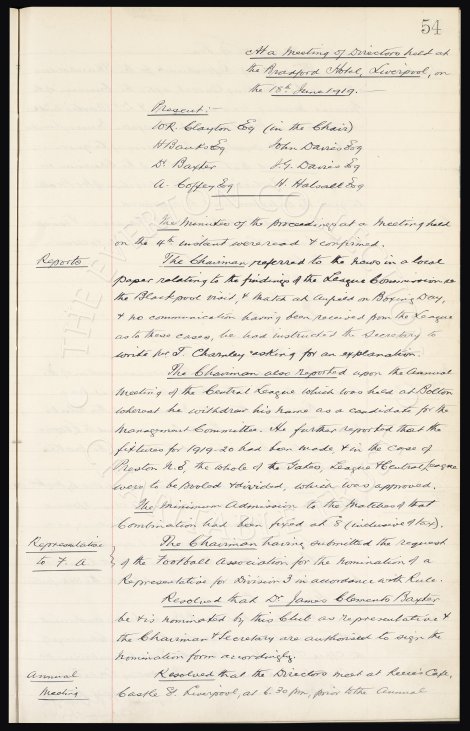 54
At a Meeting of Directors held at
the Bradford Hotel, Liverpool, on
the 18th June 1919:—
Present:-
W.R. Clayton Esq (in the Chair)
H Banks Esq John Davies Esq
Dr Baxter J.G. Davies Esq
A. Coffey Esq H. Halsall Esq
The Minutes of the proceedings at a Meeting held
on the 4th instant were read & confirmed.
Reports The Chairman referred to the news in a local
paper relating to the findings of the League Commission re
the Blackpool visit, & match at Anfield on Boxing Day,
& no communication having been received from the League
as to these cases, he had instructed the Secretary to
write Mr T. Charnley asking for an explanation.
The Chairman also reported upon the Annual
Meeting of the Central League which was held at Bolton
whereat he withdrew his name as a candidate for the
Management Committee. He further reported that the
fixtures for 1919-20 had been made, & in the case of
Preston N.E, the whole of the Gates, League & Central League
were to be pooled & divided, which was approved.
The minimum Admission to the Matches of that
Combination had been fixed at (inclusive of tax).
Representative The Chairman having submitted the request
to F. A. of the Football Association for the nomination of a
Representative for Division 3 in accordance with Rule.
Resolved that Dr James Clement Baxter
be & is nominated by this Club as representative &
the Chairman & Secretary are authorised to sign the
nomination form accordingly.
Annual Resolved that the Directors meet at Reece's Cafe,
Meeting Castle St. Liverpool, at 6.30 pm, prior to the Annual